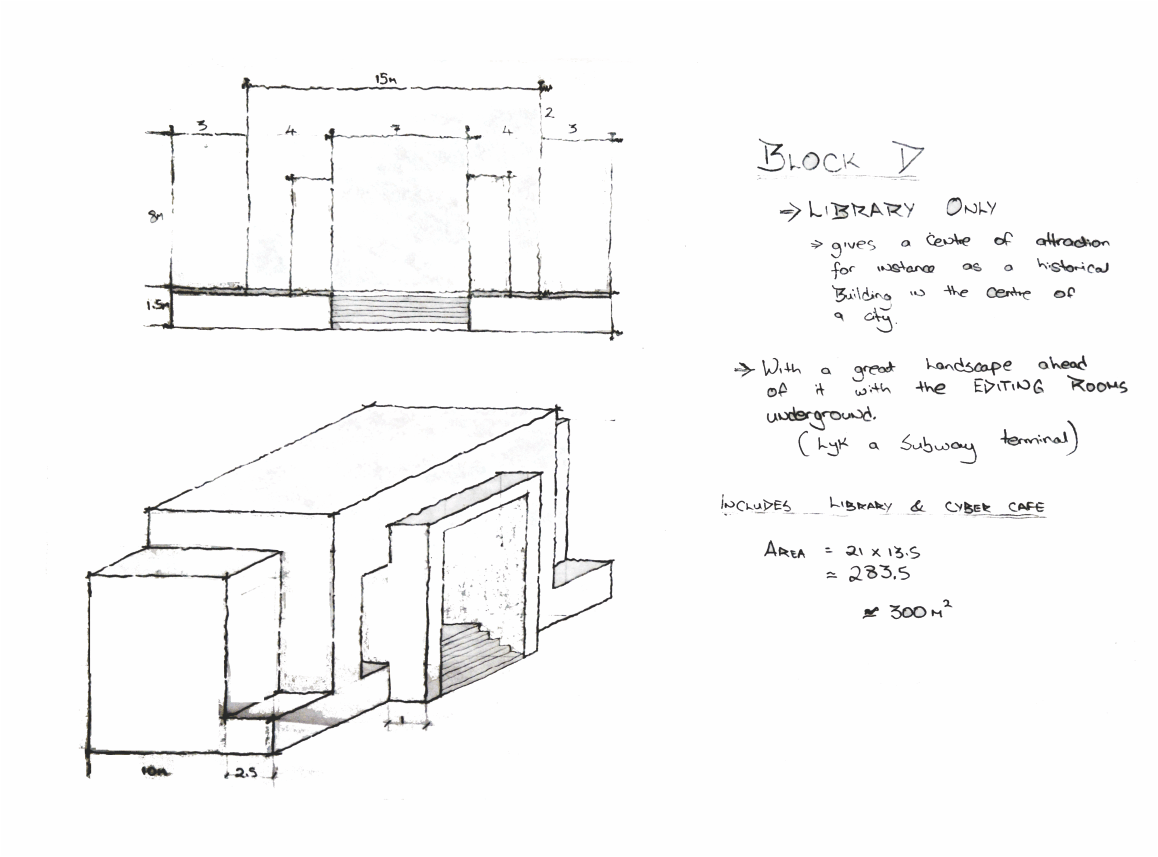 15M
2
3
4
7
4
3
8M
1.5M
BLOCK D
⇒ LIBRARY ONLY
⇒ gives a centre of attraction
for instance as a historical
Building in the centre of
a city.
⇒ With a great landscape ahead
of it with the EDITING ROOMS
underground.
(Lyk a Subway terminal)
INCLUDES LIBRARY & CYBER CAFE
AREA = 21 x 13.5
= 283.5
≃ 300 M²
1
10M
2.5